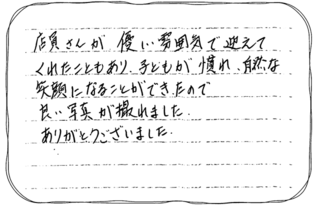 店員さんが 優しい雰囲気で迎えて
くれたこともあり、子どもが慣れ、自然な
笑顔になることができたので
良い写真が撮れました。
ありがとうございました。